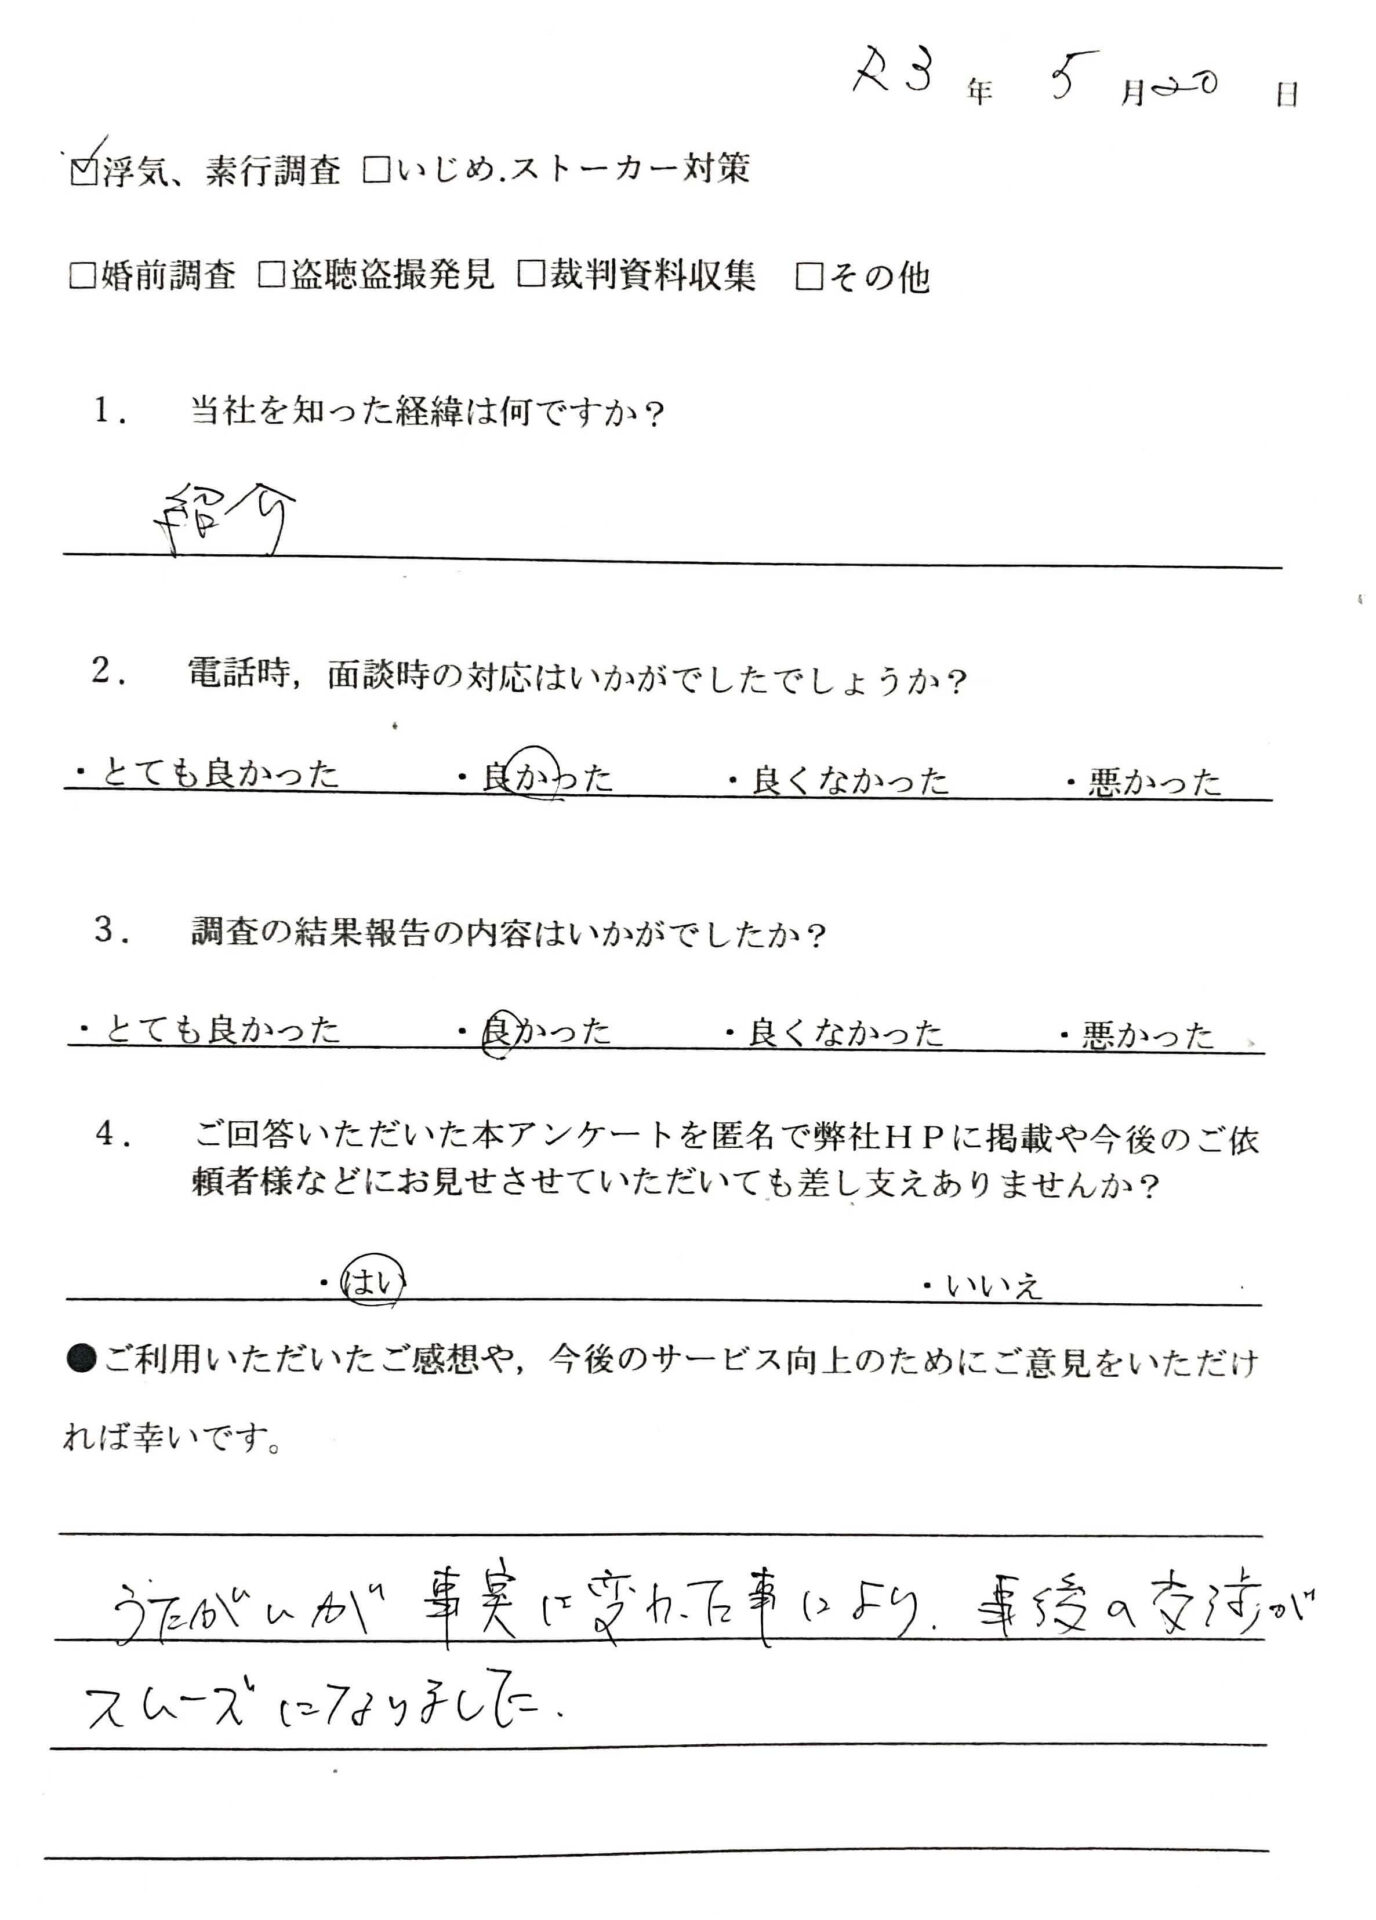 R3年 5月20日
☑浮気、素行調査 □いじめ.ストーカー対策
□婚前調査 □盗聴盗撮発見 □裁判資料収集 □その他
1. 当社を知った経緯は何ですか？
紹介
2. 電話時，面談時の対応はいかがでしたでしょうか？
・とても良かった ・良かった ・良くなかった ・悪かった
3. 調査の結果報告の内容はいかがでしたか？
・とても良かった ・良かった ・良くなかった ・悪かった
4. ご回答いただいた本アンケートを匿名で弊社ＨＰに掲載や今後のご依
頼者様などにお見せさせていただいても差し支えありませんか？
・はい ・いいえ
●ご利用いただいたご感想や，今後のサービス向上のためにご意見をいただけ
れば幸いです。
うたがいが事実に変わった事により、事後の交渉が
スムーズになりました.